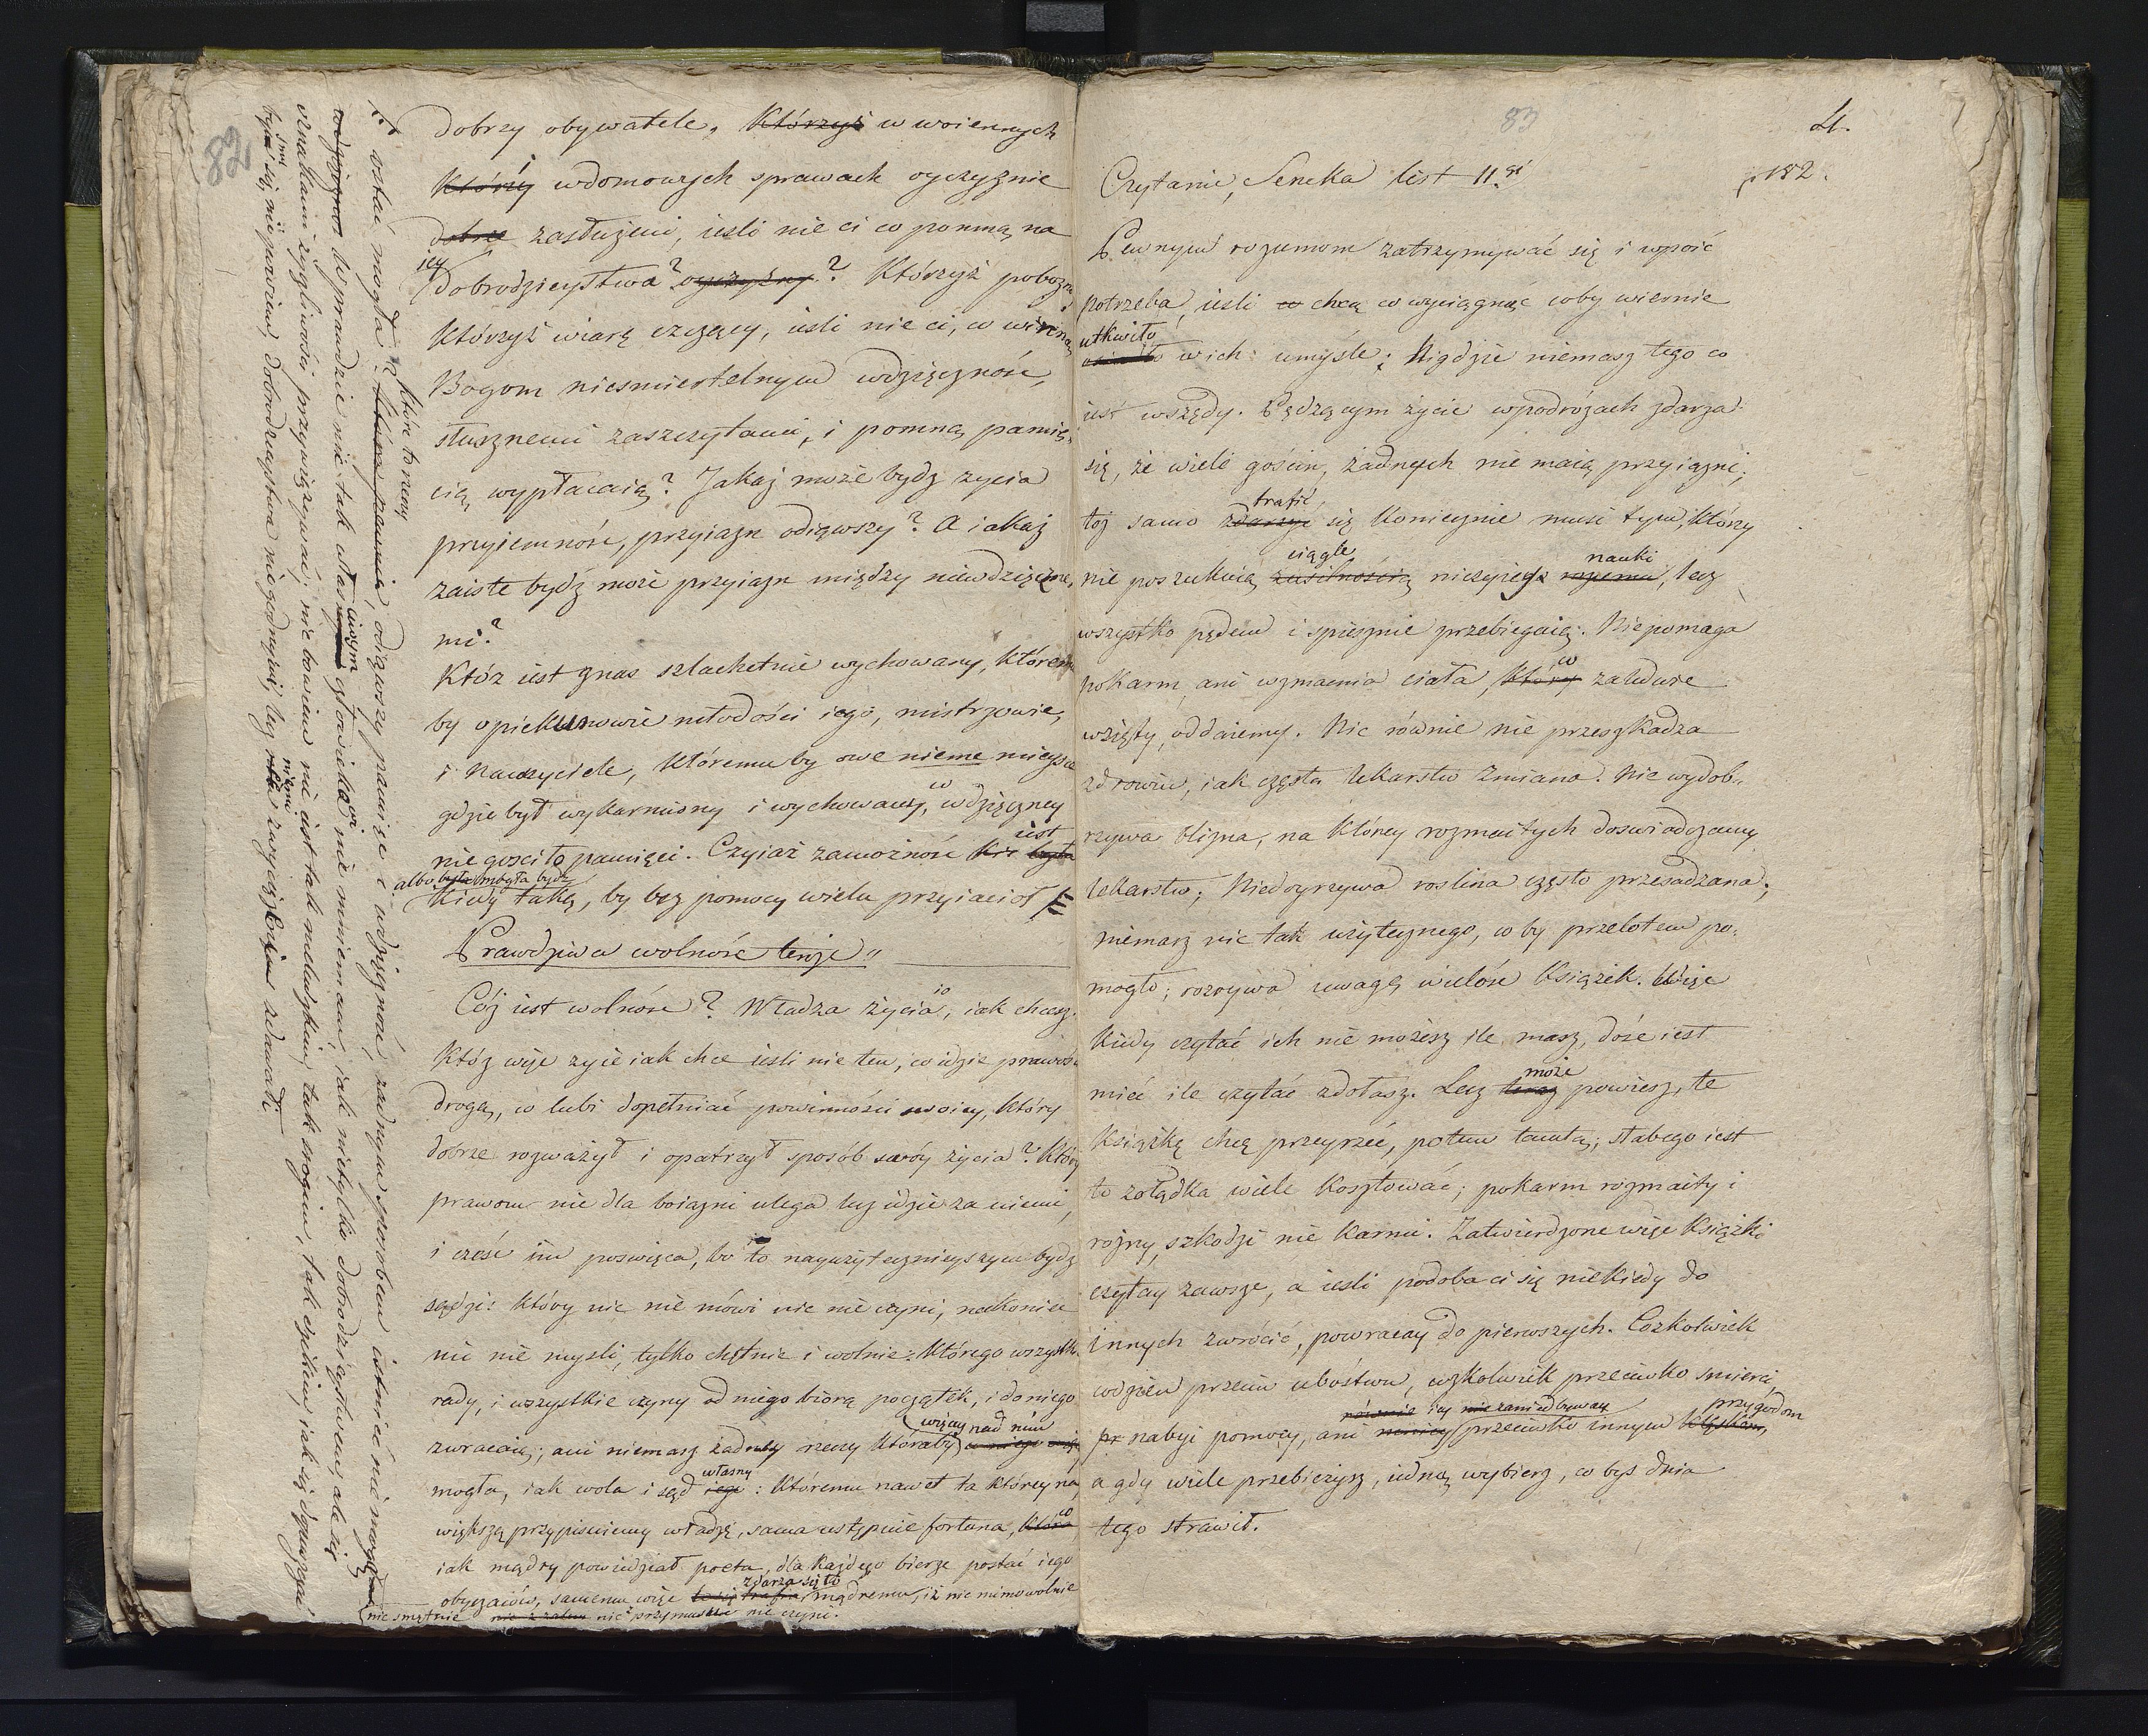 82
dobrzy obywatele, Którzyż w woiennych
Którzy i wdomowych sprawach oyczyznie
dobrze zasłużeni, iesli nie ci co pomną na
iey dobrodzieystwa? oyczyzny? Którzyż pobożni
Którzyż wiarę czczący, iesli nie ci, co winną
Bogom niesmiertelnym wdzięcznośc,
słusznemi zaszczytami, i pomną pamię,
cią wypłacaią? Jakaż może bydz zycia
przyiemnośc, przyiazn odiąwszy? A iakaż
zaiste bydź może przyiazn między niewdzięczne,
mi?
Któż iest znas szlachetnie wychowany, którem
by opiekunowie młodości iego, mistrzowie,
i nauczyciele, któremu by owe nieme mieysce
gdzie był wykarmiony i wychowany, w wdzięczney
nie gosciło pamięci. Czyiaż zamożnośc iest była
albo była mogła bydz
kiedy taką, by bez pomocy wielu przyiacioł
Prawdziwa wolność tenże"
Cóż iest wolnośc? Władza życia, iak chcesz.
Któż więc zyie iak chce iesli nie ten, co idzie prawości
drogą, co lubi dopełniać powinności swoiey, który
dobrze rozważył i opatrzył sposób swóy życia? Który
prawom nie dla boiazni ulega lecz idzie za niemi,
i cześć im poswięca, bo to nayużytecznieyszym bydz
sądzi: który nic nie mówi nic nie czyni, nakoniec
nic nie mysli, tylko chętnie i wolnie: którego wszystkie
rady, i wszystkie czyny od niego biorą początek, i do niego
zwracaią; ani niemasz żadney rzeczy któraby więcey nad nim
mogła, iak wola i sąd iego własny: któremu nawet ta którey nay
większą przypisuiemy władzę, sama ustępuie fortuna, która co
iak mądry powiedział poeta, dla każdego bierze postać iego
obyczaiów, samemu więc zdarza się to mądremu, iż nic mimowolnie
nic smętnie nic z żalem nic przymuszenie nie czyni.
ostać mogła? które to rzeczy
odiąwszy pamięc i wdzięcznośc, żadnym sposobem istnieć nie mogą
Wprawdzie nic tak własnego człowiekowi nie mniemam, iak nietylko dobrodzieystwem, ale się
oznakami życzliwości przywiązywać; nic bowiem nie iest tak nieludzkim, tak srogim, tak dzikim iak się dopuszczać
bydz się nie powiem, dobrodzieystwa niegodnym, lecz niemi zwyciężonym zdawać
83
4.
Czytanie, Seneka list 11.gi
p 182.
Pewnym rozumom zatrzymywać się i wpoić
potrzeba, iesli co chcą co wyciągnąć coby wiernie
utkwiło
osiadło w ich umyśle; Nigdzie niemasz tego co
iest wszędy. Pędzącym życie wpodróżach zdarza
się, że wiele gościn, żadnych nie maią przyiazni;
trafić
toż samo zdarzyć się koniecznie musi tym, którzy
ciągle nauki
nie poszukuią zusilnością niczyiego rozumu, lecz
wszystko pędem i spiesznie przebiegaią. Niepomaga
pokarm, ani wzmacnia ciała, który co zaledwie
wzięty, oddaiemy. Nic równie nie przeszkadza
zdrowiu, iak częsta lekarstw zmiana. Nie wydob„
rzywa blizna, na którey rozmaitych doswiadczamy
lekarstw; Niedoyrzywa roslina często przesadzana;
niemasz nic tak użytecznego, co by przelotem po:
mogło; rozrywa uwagę wielośc Książek. Więc
kiedy czytać ich nie możesz ile masz, dośc iest
mieć ile czytać zdołasz. Lecz teraz może powiesz, te
książkę chcę przeyrzeć, potem tamtą; słabego iest
to żołądka wiele kosztować; pokarm rozmaity i
rożny, szkodzi nie karmi. Zatwierdzone więc Książki
czytay zawsze, a iesli podoba ci się niekiedy do
innych zwrócić, powracay do pierwszych. Cożkolwiek
codzień przeciw ubóstwu, cożkolwiek przeciwko smierci
równie iey nie zaniedbyway przygodom
pr nabyi pomocy, ani mniey przeciwko innym klęskom,
a gdy wiele przebieżysz, iedną wybierz, co byś dnia
tego strawił.